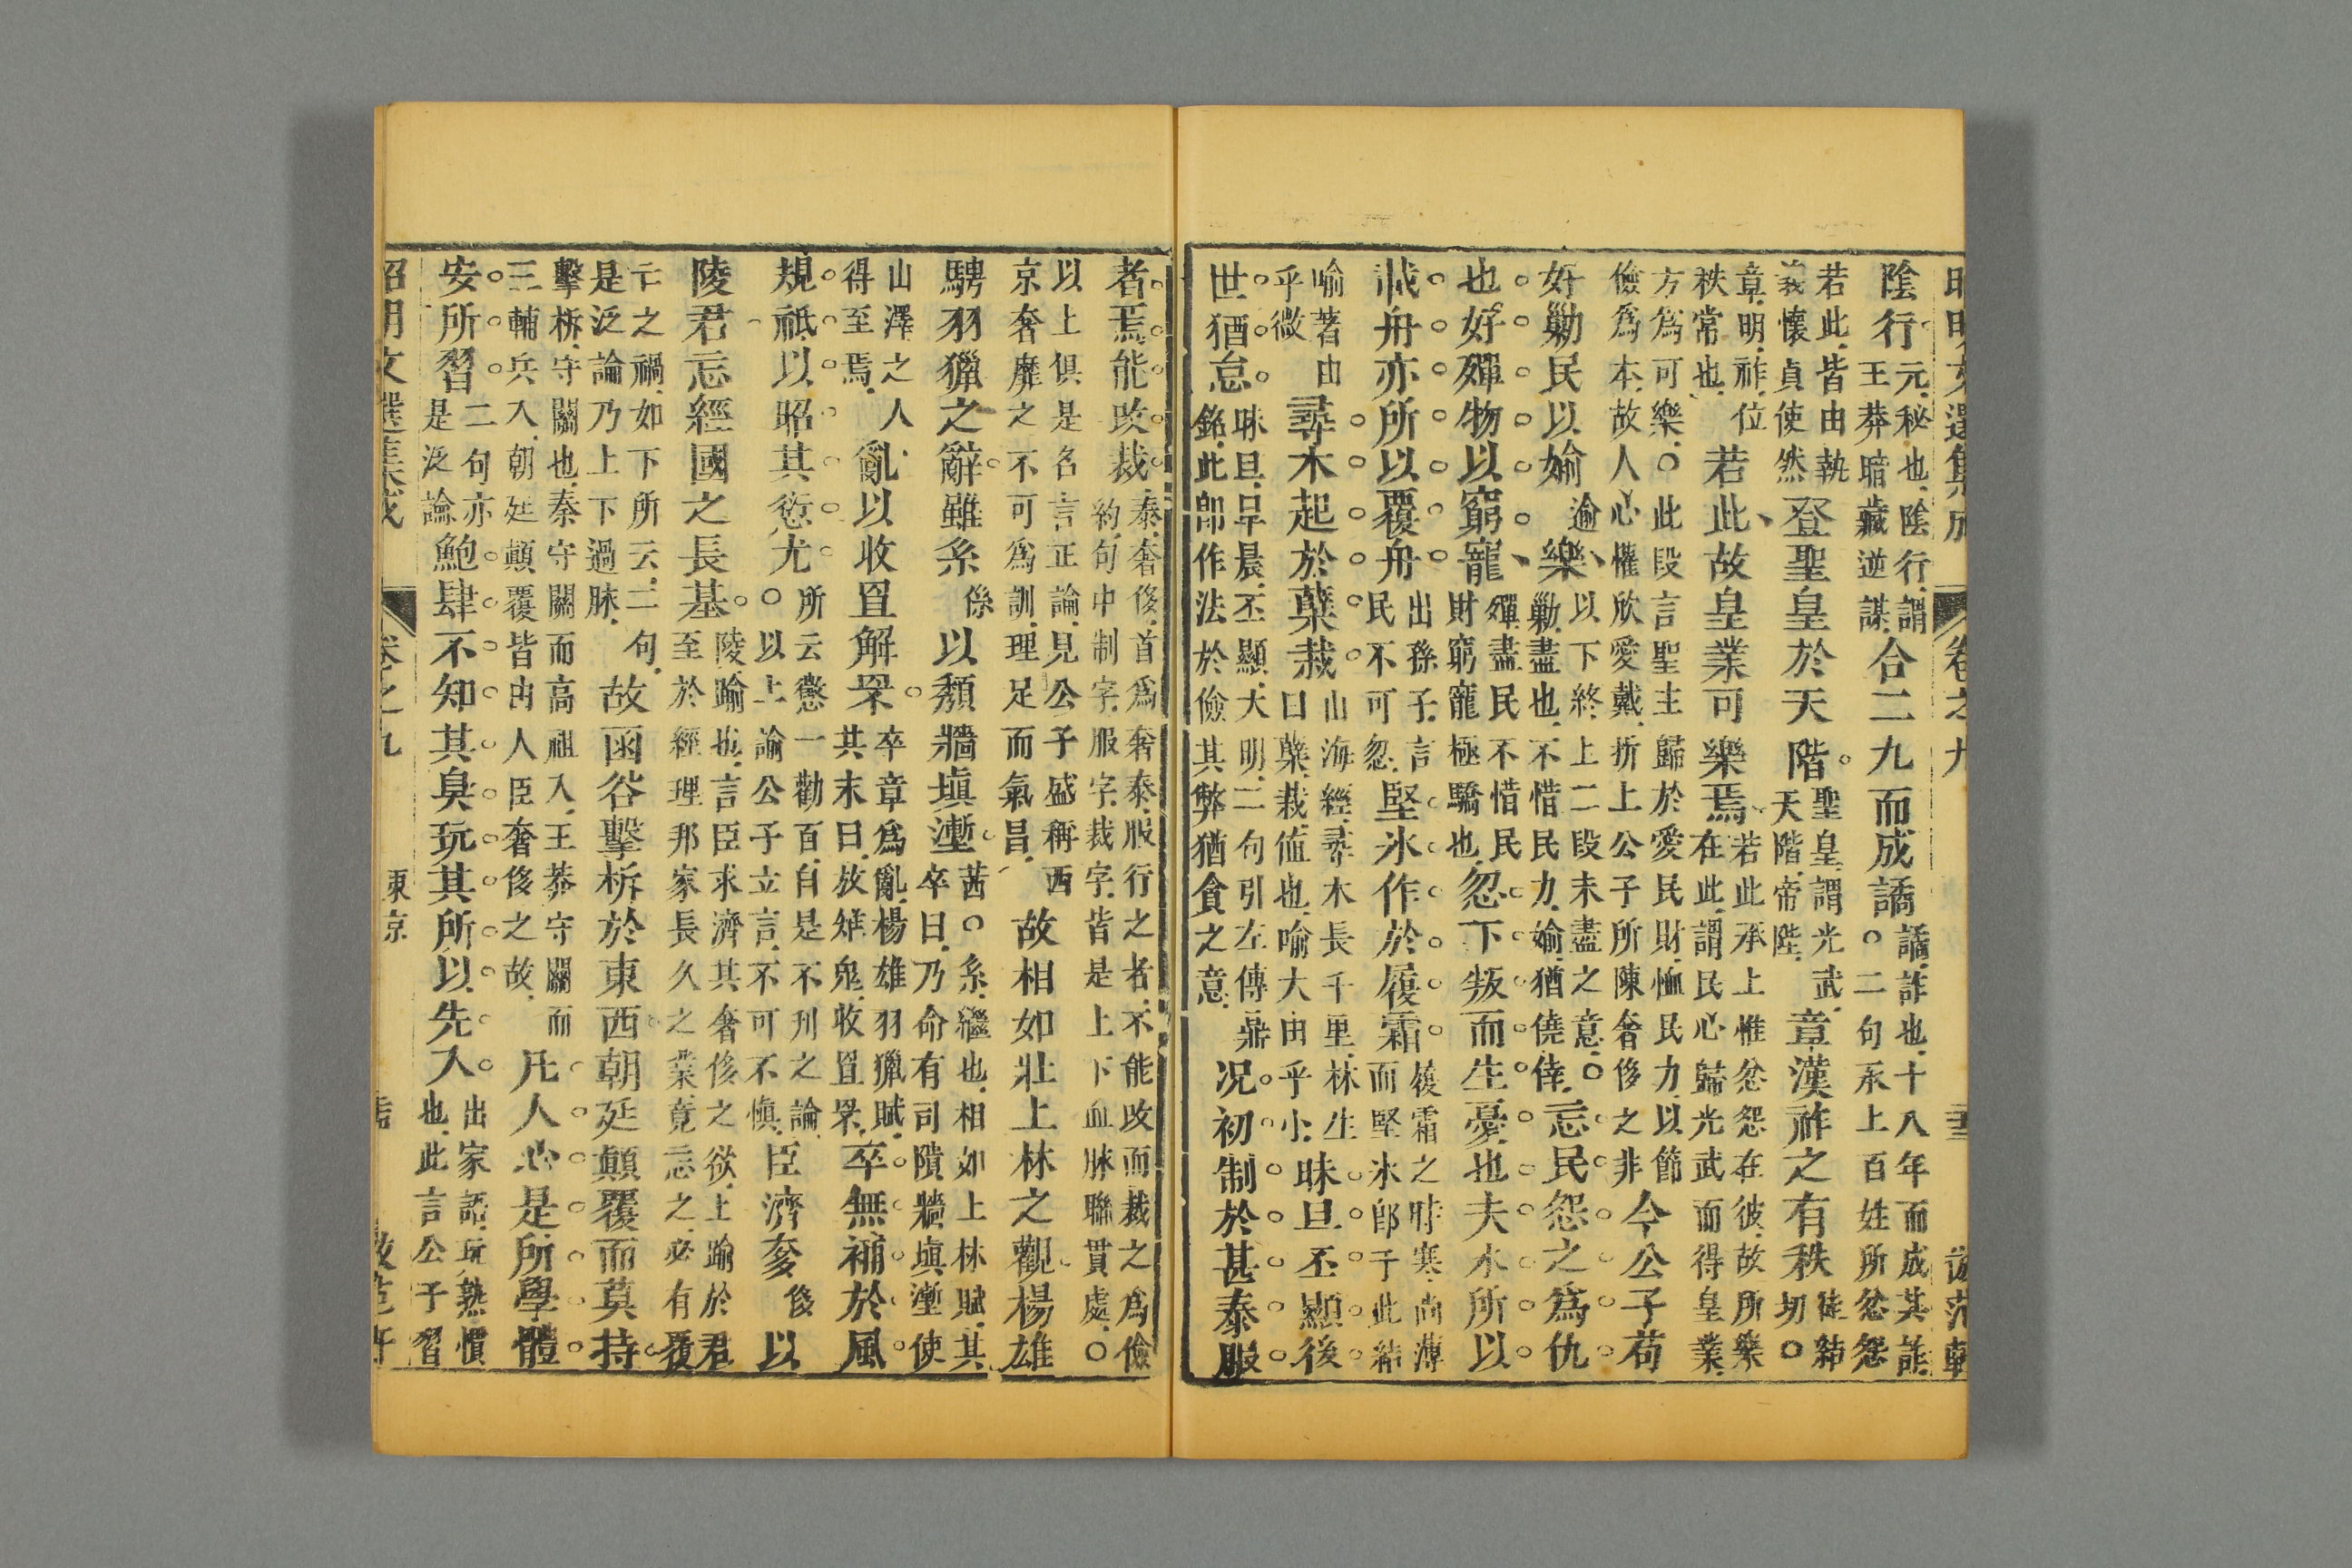 陰行元秘也陰行謂王莽暗藏逆謀合二九而成譎譎詐也十八年而成其詐○二句承上百姓所忿怨
若此皆由執義懷貞使然登聖皇於天階聖皇謂光武天階帝陛章漢祚之有秩徒結切○
章明祚位秩常也若此故皇業可樂焉若此承上惟忿怨在彼故所樂在此謂民心歸光武而得皇業
方為可樂○此段言聖主歸於愛民財恤民力以節儉為本故人心懽欣愛戴折上公子所陳奢侈之非今公子苟
好勦民以媮逾樂以下終上二段未盡之意○勦盡也不惜民力媮猶僥倖忘民怨之為仇
也好殫物以窮寵殫盡民不惜民財窮寵極驕也忽下叛而生憂也夫水所以
載舟亦所以覆舟出孫子言民不可忽堅氷作於履霜後霜之時寒尚薄而堅氷即于此結
喻著由乎微尋木起於蘖栽山海經尋木長千里林生曰蘖栽值也喻大由乎小昧旦丕顯後
世猶怠昧旦早晨丕顯大明二句引左傳鼎銘此即作法於儉其弊猶貪之意况初制於甚泰服
者焉能改裁泰奢侈首為奢泰服行之者不能改而裁之為儉約句中制字服字裁字皆是上下血脉聯貫處○
以上俱是名言正論見公子盛稱西京奢靡之不可為訓理足而氣昌故相如壯上林之觀楊雄
騁羽獵之辭雖系係以頹牆塡壍茜○系繼也相如上林賦其卒曰乃命有司隤牆塡壍使
山澤之人得至焉亂以收罝解罘卒章為亂楊雄羽獵賦其末曰放雉兔收罝罘卒無補於風
規祗以昭其愆尤所云懲一勸百自是不刊之論○以上諭公子立言不可不愼臣濟奓侈以
陵君忘經國之長基陵踰也言臣求濟其奢侈之欲上踰於君至於經理邦家長久之業竟忘之必有覆
亡之禍如下所云二句是泛論乃上下過脉故函谷擊柝於東西朝廷顚覆而莫持
擊柝守關也秦守關而高祖入王莽守關而三輔兵入朝廷顚覆皆由人臣奢侈之故凡人心是所學體
安所習二句亦是泛論鮑肆不知其臭玩其所以先入出家語玩熟慣也此言公子習